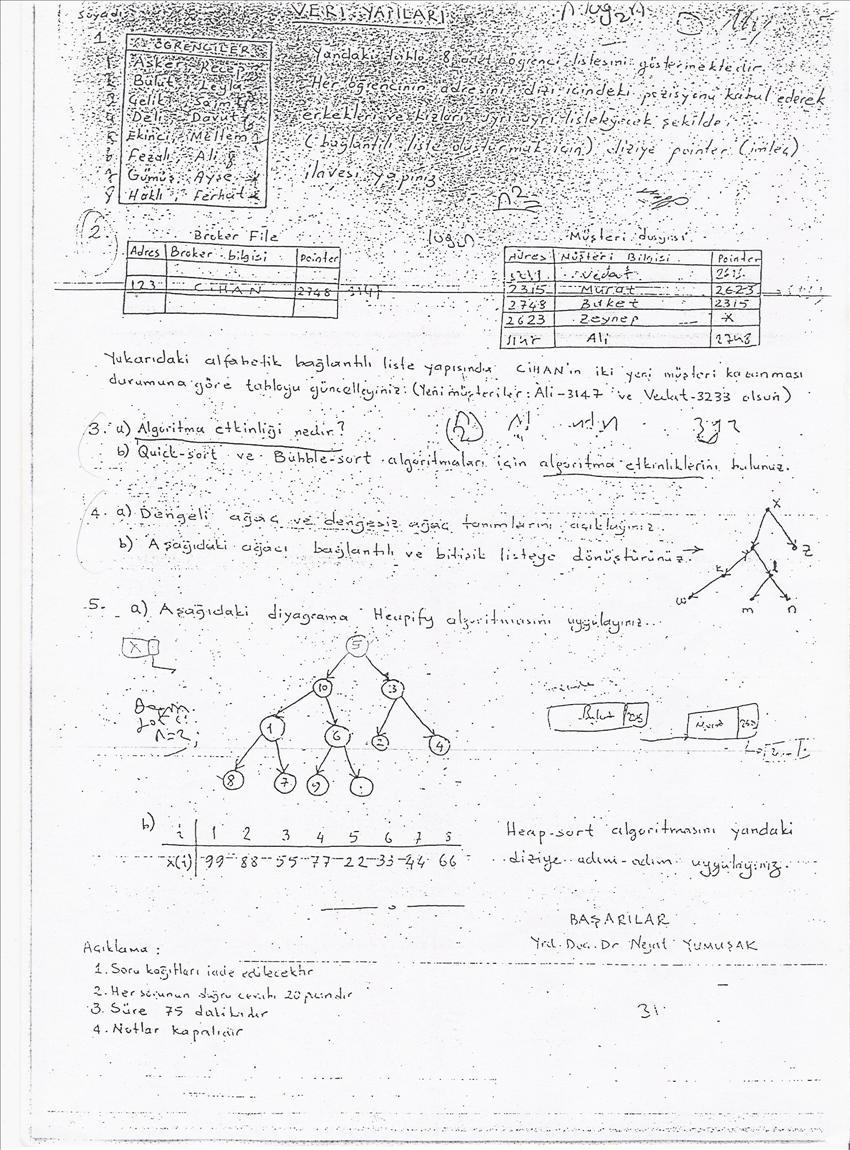 VERİ YAPILARI
n log2n
Soyadı
1.
ÖĞRENCİLER
Asker, Recep
Bulut, Leyla
Çelik, Saim
4 Deli, Davut
5 Ekinci, Meltem
6 Fezalı, Ali 8
7 Gümüş, Ayşe x
8 Haklı, Ferhat x
Yandaki tablo 8 adet öğrenci listesini göstermektedir.
Her öğrencinin adresini dizi içindeki pozisyonu kabul ederek
erkekleri ve kızları ayrı ayrı listeleyecek şekilde
(bağlantılı liste oluşturmak için) diziye pointer (imleç)
ilavesi yapınız.
n2
2.
Broker File
Adres Broker bilgisi Pointer
123 CİHAN 2748 3147
logn
Müşteri dosyası
Adres Müşteri Bilgisi Pointer
Vedat
2315 Murat 2623
2748 Buket 2315
2623 Zeynep x
Ali 2748
Yukarıdaki alfabetik bağlantılı liste yapısında CİHAN'ın iki yeni müşteri kazanması
durumuna göre tabloyu güncelleyiniz. (Yeni müşteriler: Ali-3147 ve Vedat-3233 olsun)
3. a) Algoritma etkinliği nedir?
b) Quick-sort ve Bubble-sort algoritmaları için algoritma etkinliklerini bulunuz.
4. a) Dengeli ağaç ve dengesiz ağaç tanımlarını açıklayınız.
b) Aşağıdaki ağacı bağlantılı ve bitişik listeye dönüştürünüz. →
X
Y Z
k l
w m n
5. a) Aşağıdaki diyagrama Heapify algoritmasını uygulayınız...
X
5
10 3
1 6 2 4
8 7 9
Buket
b)
i 1 2 3 4 5 6 7 8
x(i) 99 88 55 77 22 33 44 66
Heap-sort algoritmasını yandaki
diziye adım-adım uygulayınız.
BAŞARILAR
Yrd. Doç. Dr Nejat YUMUŞAK
Açıklama :
1. Soru kağıtları iade edilecektir
2. Her sorunun doğru cevabı 20 puandır
3. Süre 75 dakikadır
4. Notlar kapalıdır
31